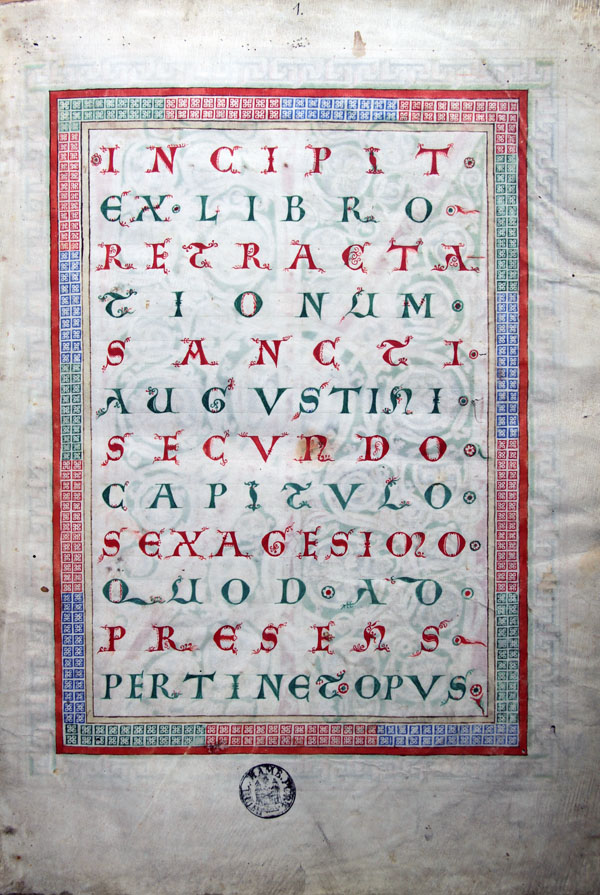 1.
INCIPIT
EX·LIBRO
RETRACTA
TIONUM
SANCTI
AUGVSTINI
SECVNDO
CAPITVLO
SEXAGESIMO
QUOD·AD
PRESENS
PERTINET OPVS